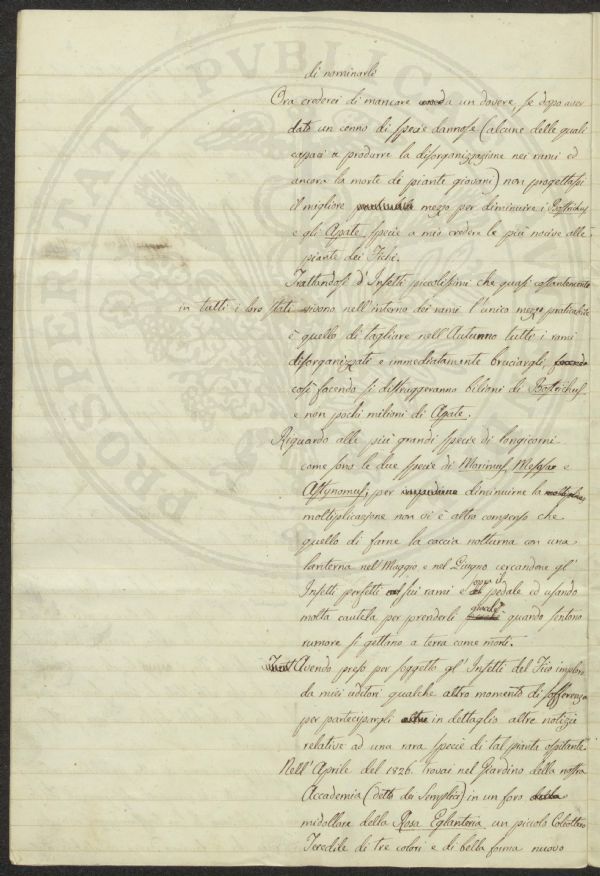 di nominarle
Ora crederei di mancare a un dovere, se dopo aver
dato un cenno di specie dannose (alcune delle quali
capaci a produrre la disorganizzazione nei rami ed
ancora la morte di piante giovani) non progettassi
il migliore mezzo per diminuire i Bostrichus
e gli Apate, specie a mio credere le più nocive alle
piante dei Fichi.
Trattandosi d'Insetti piccolissimi che quasi costantemente
in tutti i loro stati vivono nell'interno dei rami l'unico mezzo praticabile
è quello di tagliare nell'Autunno tutti i rami
disorganizzati e immediatamente bruciargli, facendo
così facendo si distruggeranno bilioni di Bostrichus
e non pochi milioni di Apate.
Riguardo alle più grandi specie di longicorni
come sono le due specie di Morimus, e
Astynomus, per impedirne diminuirne la
moltiplicazione non vi è altro compenso che
quello di farne la caccia notturna con una
lanterna nel Maggio e nel Giugno cercandone gl'
Insetti perfetti sui rami e sopra il pedale ed usando
molta cautela per prenderli giacchè quando sentono
rumore si gettano a terra come morti.
Avendo preso per soggetto gl'Insetti del Fico imploro
da miei uditori qualche altro momento di sofferenza
per partecipargli altre in dettaglio altre notizie
relative ad una rara specie di tal pianta ospitante.
Nell'Aprile del 1826. trovai nel Giardino della nostra
Accademia (detto de Semplici) in un foro della
midollare della Rosa Eglanteria un piccolo Coleottero
di tre colori e di bella forma nuovo